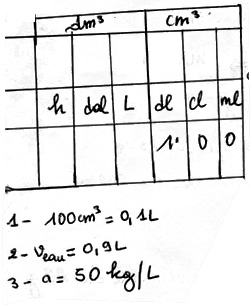 dm³ cm³
h dal L dl cl ml
1 0 0
1- 100cm³ = 0,1L
2- Veau = 0,9L
3- a = 50 kg/L